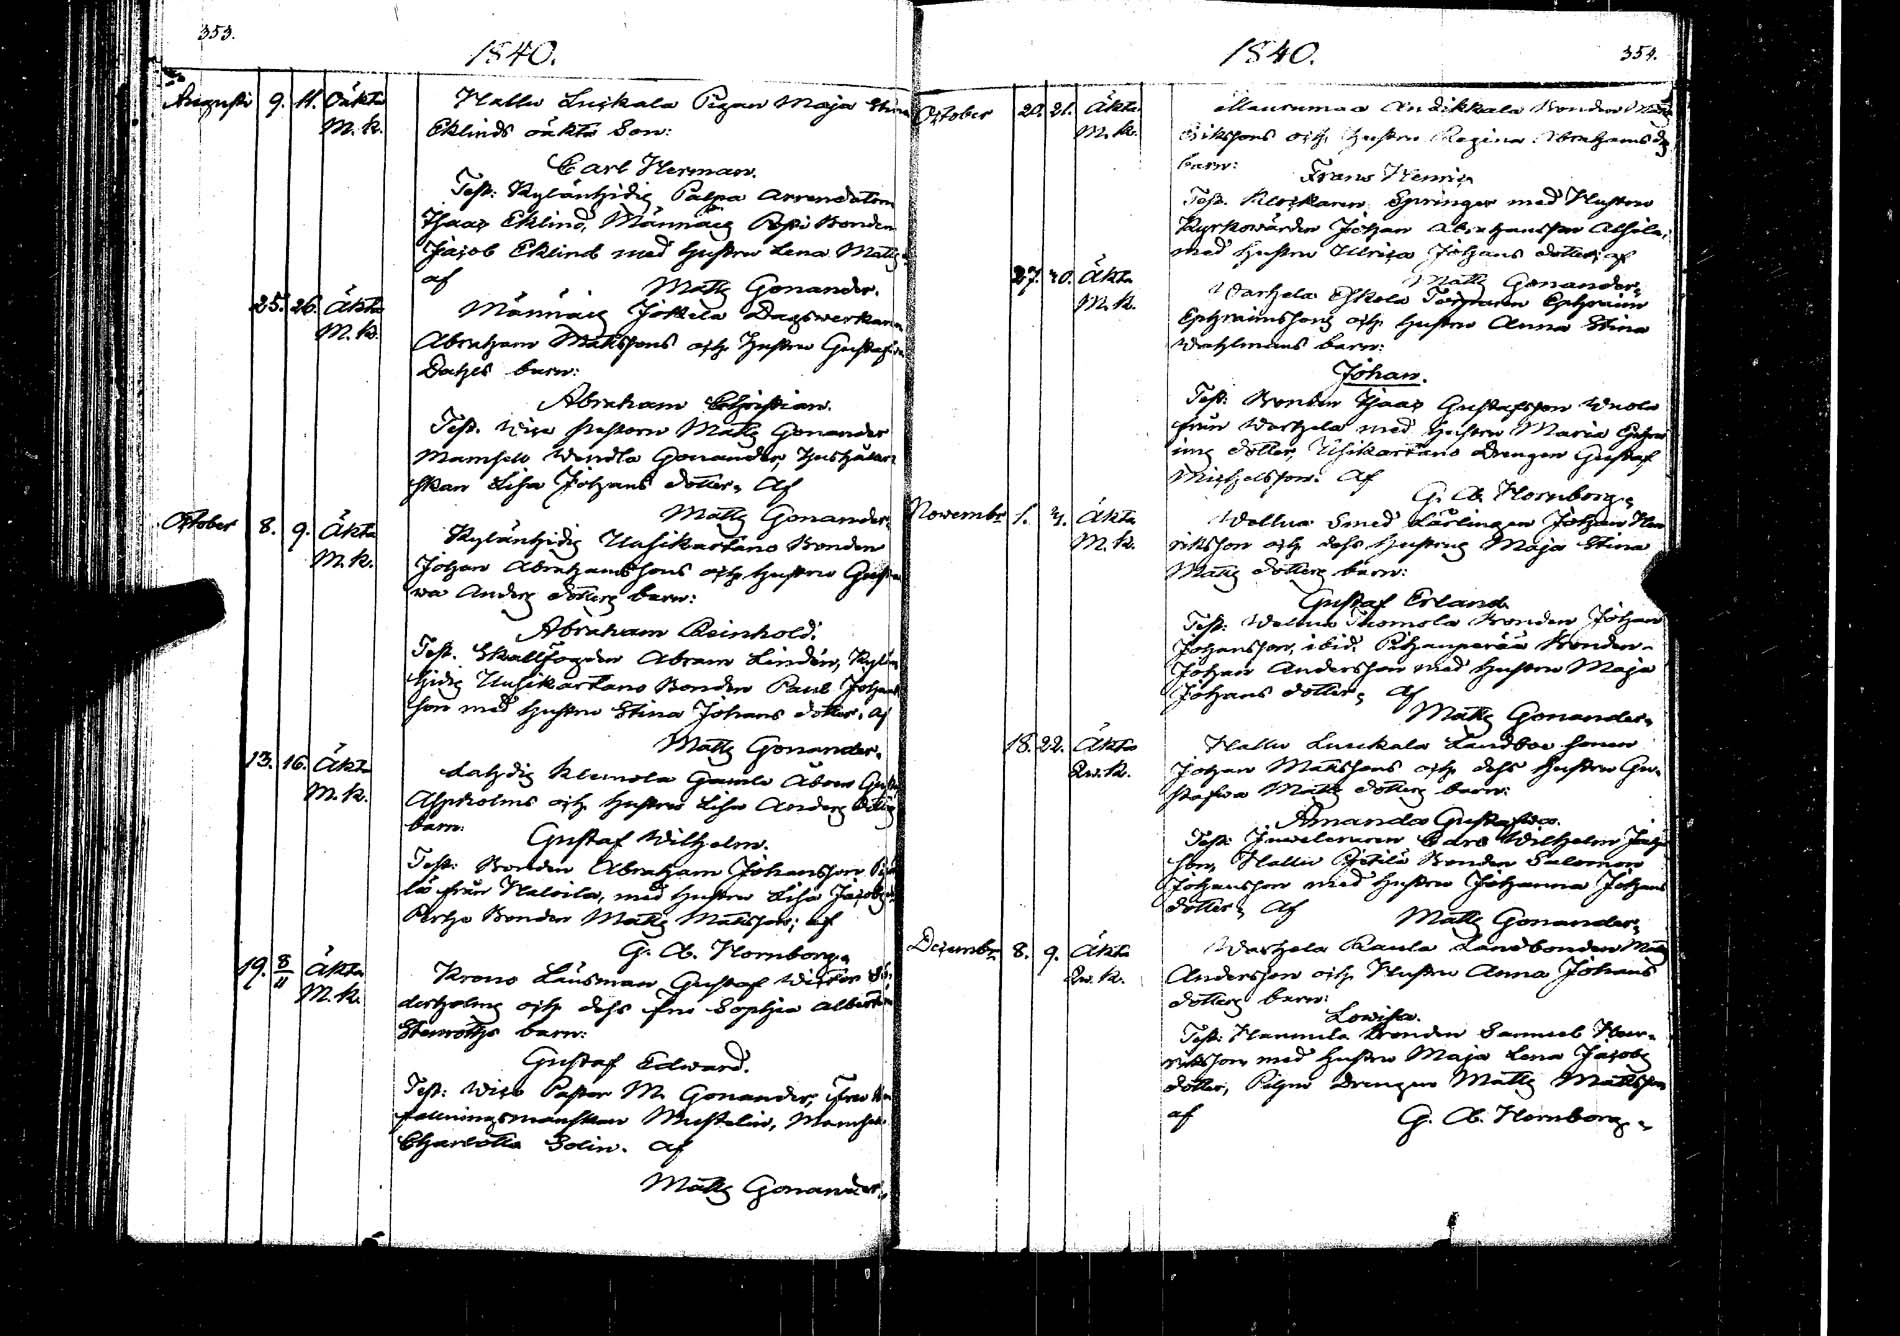 353.
1840.
Augusti 9. 11. Oäkta Hallu Luckala Pigan Maja Stina
M. k. Eklinds oäkta Son:
Carl Herman.
Test: Kylänhidig Palpa Arrendatorn
Isaac Eklind, Männäig Bonden
Jacob Eklind med hustru Lena Matts
af Matts Gonander.
25. 26. Äkta Männäig Jottila Dagswerkaren
M. k. Abraham Mattssons och Hustru Gustafva
Dahls barn:
Abraham Christian.
Test. Vice Pastorn Matts Gonander
Mamsell Wendla Gonander, Hushåller-
skan Lisa Johans dotter, Af
Matts Gonander.
October 8. 9. Äkta Kylänhidig Uusikartano Bonden
M. k. Johan Abrahamssons och hustru Gusta-
va Anders dotters barn:
Abraham Reinhold.
Test. Skallfogden Abram Lindén, Kylän-
hidig Uusikartano Bonden Paul Johans-
son med hustru Stina Johans dotter, Af
Matts Gonander.
13. 16. Äkta Lahdig Klemola Gamle Åboen
M. k. Aspholms och hustru Lisa Anders dotters
barn:
Gustaf Wilhelm.
Test: Bonden Abraham Johansson
lä från Haloila, med hustru Lisa Jacobs
Perho Bonden Matts Mattsson; af
G. A. Hornborg.
19. 8/11 Äkta Krono Länsman Gustaf
M. k. derholms och dess fru Sophia Albertina
Stenroths barn:
Gustaf Edward.
Test: Vice Pastor M. Gonander, Fru
fallningsmanskan Mustelin, Mamsell
Charlotta Solin. Af
Matts Gonander.
1840.
354.
October 20. 21. Äkta Maurumaa Andikkala Bonden Matts
M. k. Erikssons och hustru Regina Abrahams
barn: Frans Henric
Test. Klockaren Springer med Hustru
Kyrkowärden Johan Abrahamsson Alhila
med hustru Ulrica Johans dotter; af
Matts Gonander.
27. 30. Äkta Warhela Eskola Ephraim
M. k. Ephraimssons och hustru Anna Stina
Wahlmans barn:
Johan.
Test: Bonden Isaac Gustafsson Wuola
från Warhela med hustru Maria Ephra-
ims dotter, Uusikartano Drengen Gustaf
Michelsson. Af
G. A. Hornborg.
November 1. Äkta Wellua Smed Lärlingen Johan Hen-
M. k. riksson och dess hustrus Maja Stina
Matts dotters barn:
Gustaf Erland
Test: Wellua Tuomola Bonden Johan
Johansson, ibid. Pihanperää Bonden
Johan Andersson med hustru Maja
Johans dotter, Af
Matts Gonander.
18. 22. Äkta Hallu Luckala Landboe sonen
Qw. k. Johan Mattssons och dess hustru Gu-
stafva Matts dotters barn:
Amanda Gustafva.
Test: Juveleraren Carl Wilhelm
son, Hallu Pietilä Bonden Salomon
Johansson med hustru Johanna Johans
dotter, Af Matts Gonander.
December 8. 9. Äkta Warhela Paula Landbonden Matts
Qw. k. Andersson och Hustru Anna Johans
dotters barn:
Lovisa.
Test: Hannula Bonden Samuel Hen-
riksson med hustru Maja Lena Jacobs
dotter, drengen Matts Mattsson
af G. A. Hornborg.